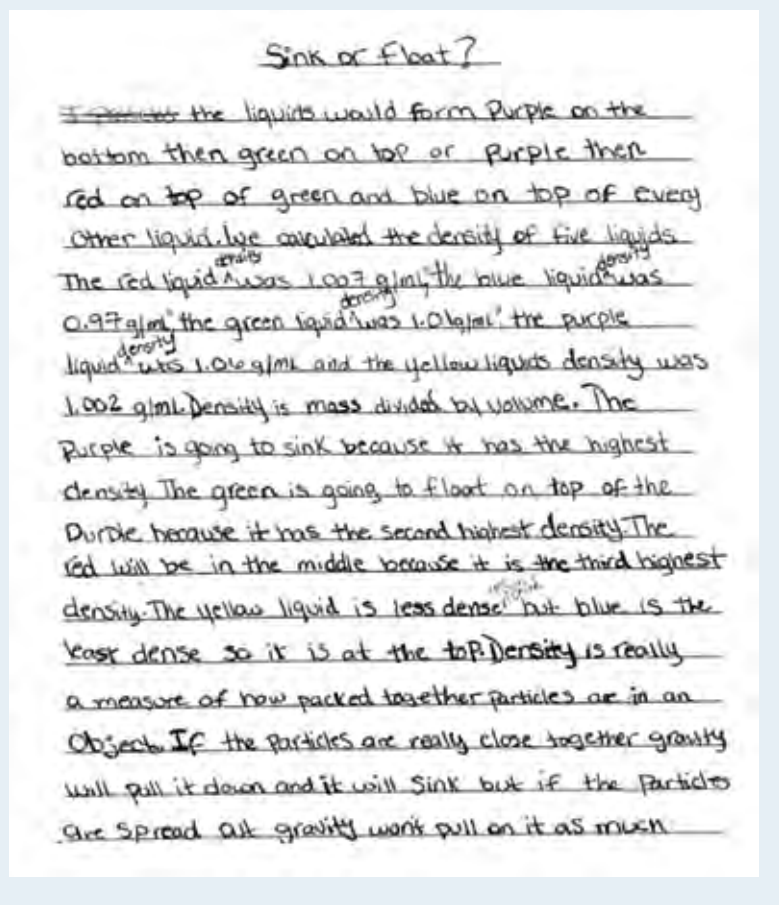 Sink or Float?
the liquids would form Purple on the
bottom then green on top or purple then
red on top of green and blue on top of every
Other liquid. We calculated the density of five liquids
The red liquid density was 1.007 g/ml, the blue liquid density was
0.97 g/ml, the green liquid density was 1.01 g/ml, the purple
liquid density was 1.06 g/ml and the yellow liquids density was
1.002 g/ml. Density is mass divided by volume. The
Purple is going to sink because it has the highest
density The green is going to float on top of the
Purple because it has the second highest density. The
red will be in the middle because it is the third highest
density. The yellow liquid is less dense but blue is the
least dense so it is at the top. Density is really
a measure of how packed together particles are in an
Object. If the particles are really close together gravity
will pull it down and it will Sink but if the Particles
are spread out gravity won't pull on it as much